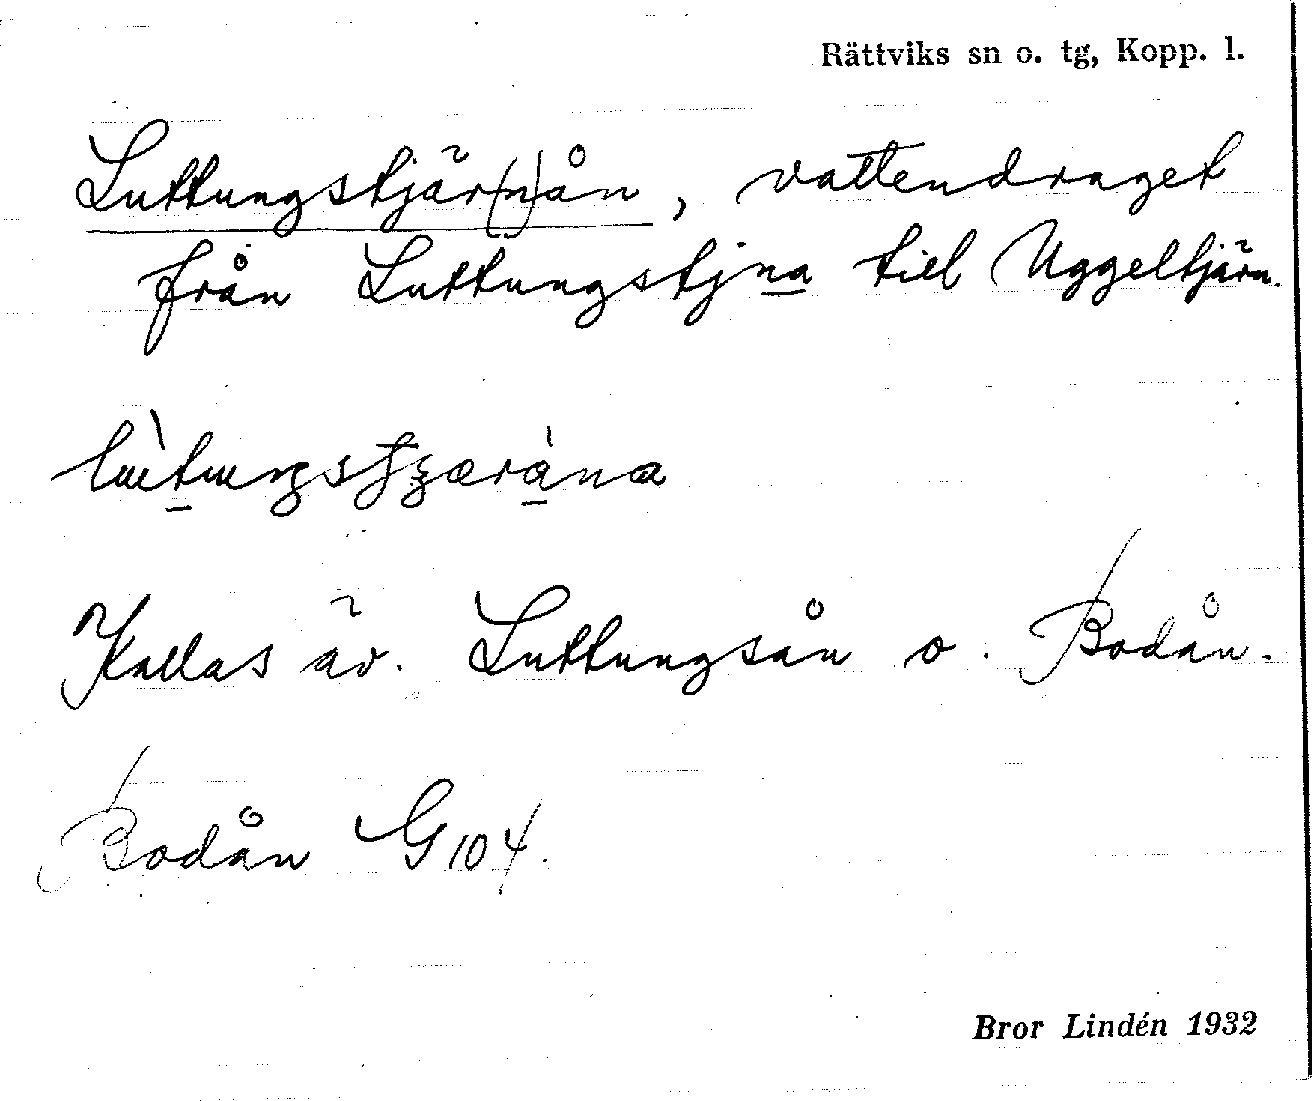 Rättviks sn o. tg, Kopp. l.
Luttungstjär(n)ån, vattendraget
från Luttungstjna till Uggeltjärn.
Kallas äv. Luttungsån o. Bodån.
Bodån G 104.
Bror Lindén 1932